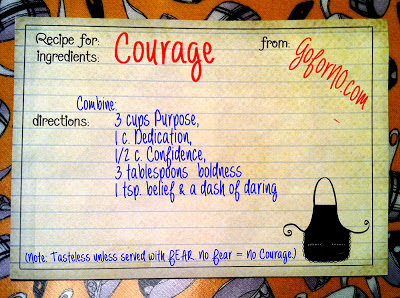 Recipe for: Courage from: GoforNO.com
ingredients:
Combine:
directions: 3 cups Purpose,
1 c. Dedication,
1/2 c. Confidence,
3 tablespoons boldness
1 tsp. belief & a dash of daring
(Note: Tasteless unless served with fEAR. no fear = no Courage.)